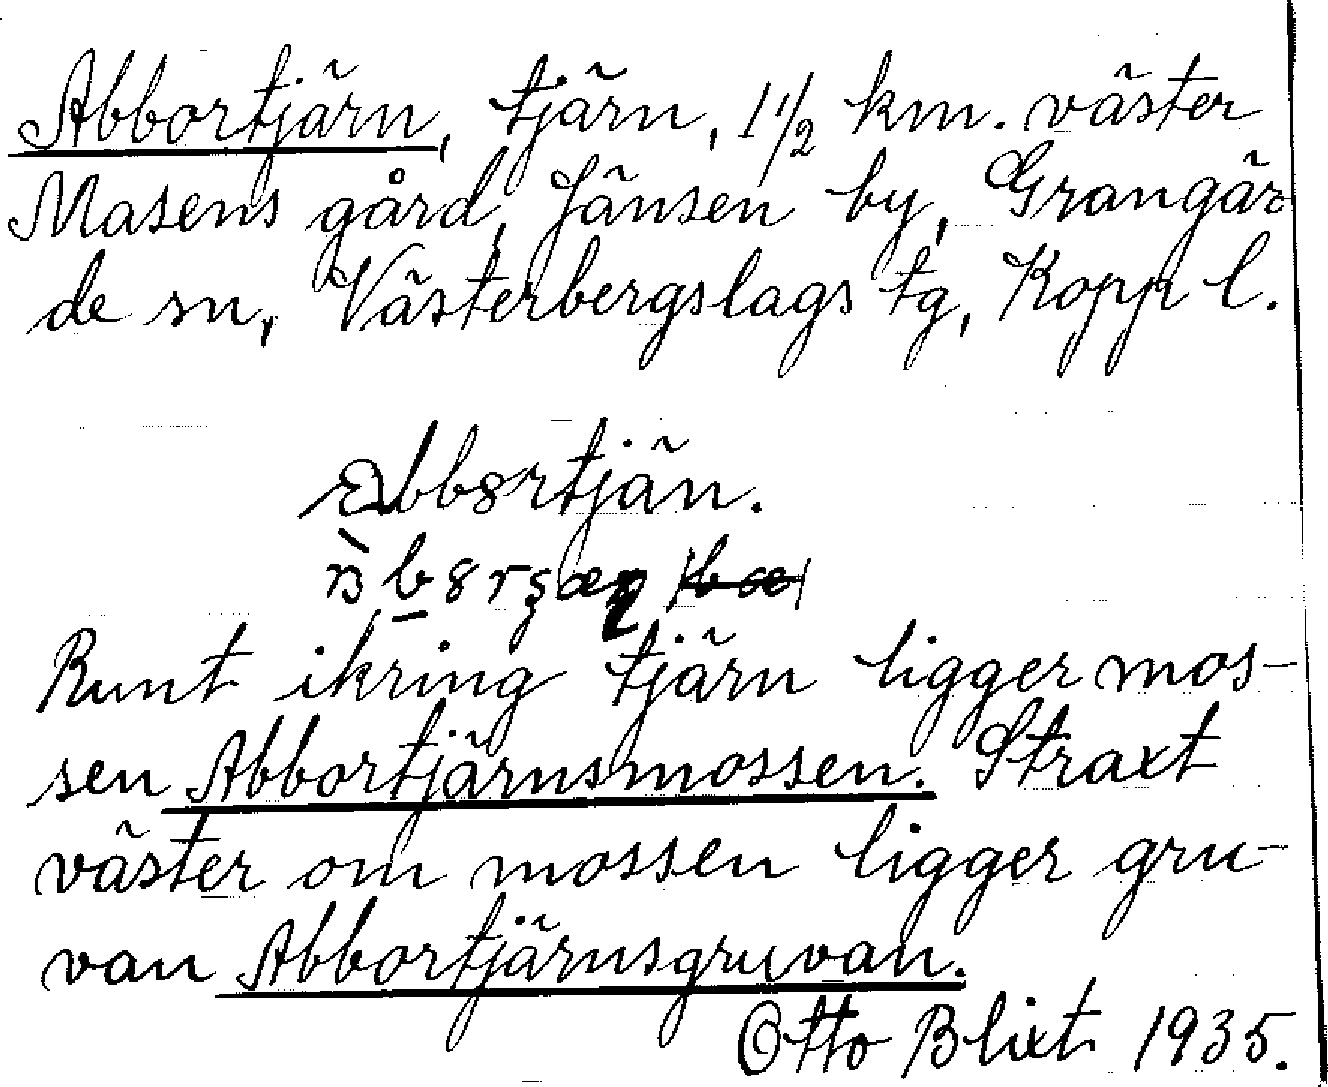 Abbortjärn, tjärn, 1 1/2 km. väster
Masens gård, Jänsen by, Grangär-
de sn, Västerbergslags tg, Kopp l.
Abb8rtjän.
Runt ikring tjärn ligger mos-
sen Abbortjärnsmossen. Straxt
väster om mossen ligger gru-
van Abbortjärnsgruvan.
Otto Blixt 1935.